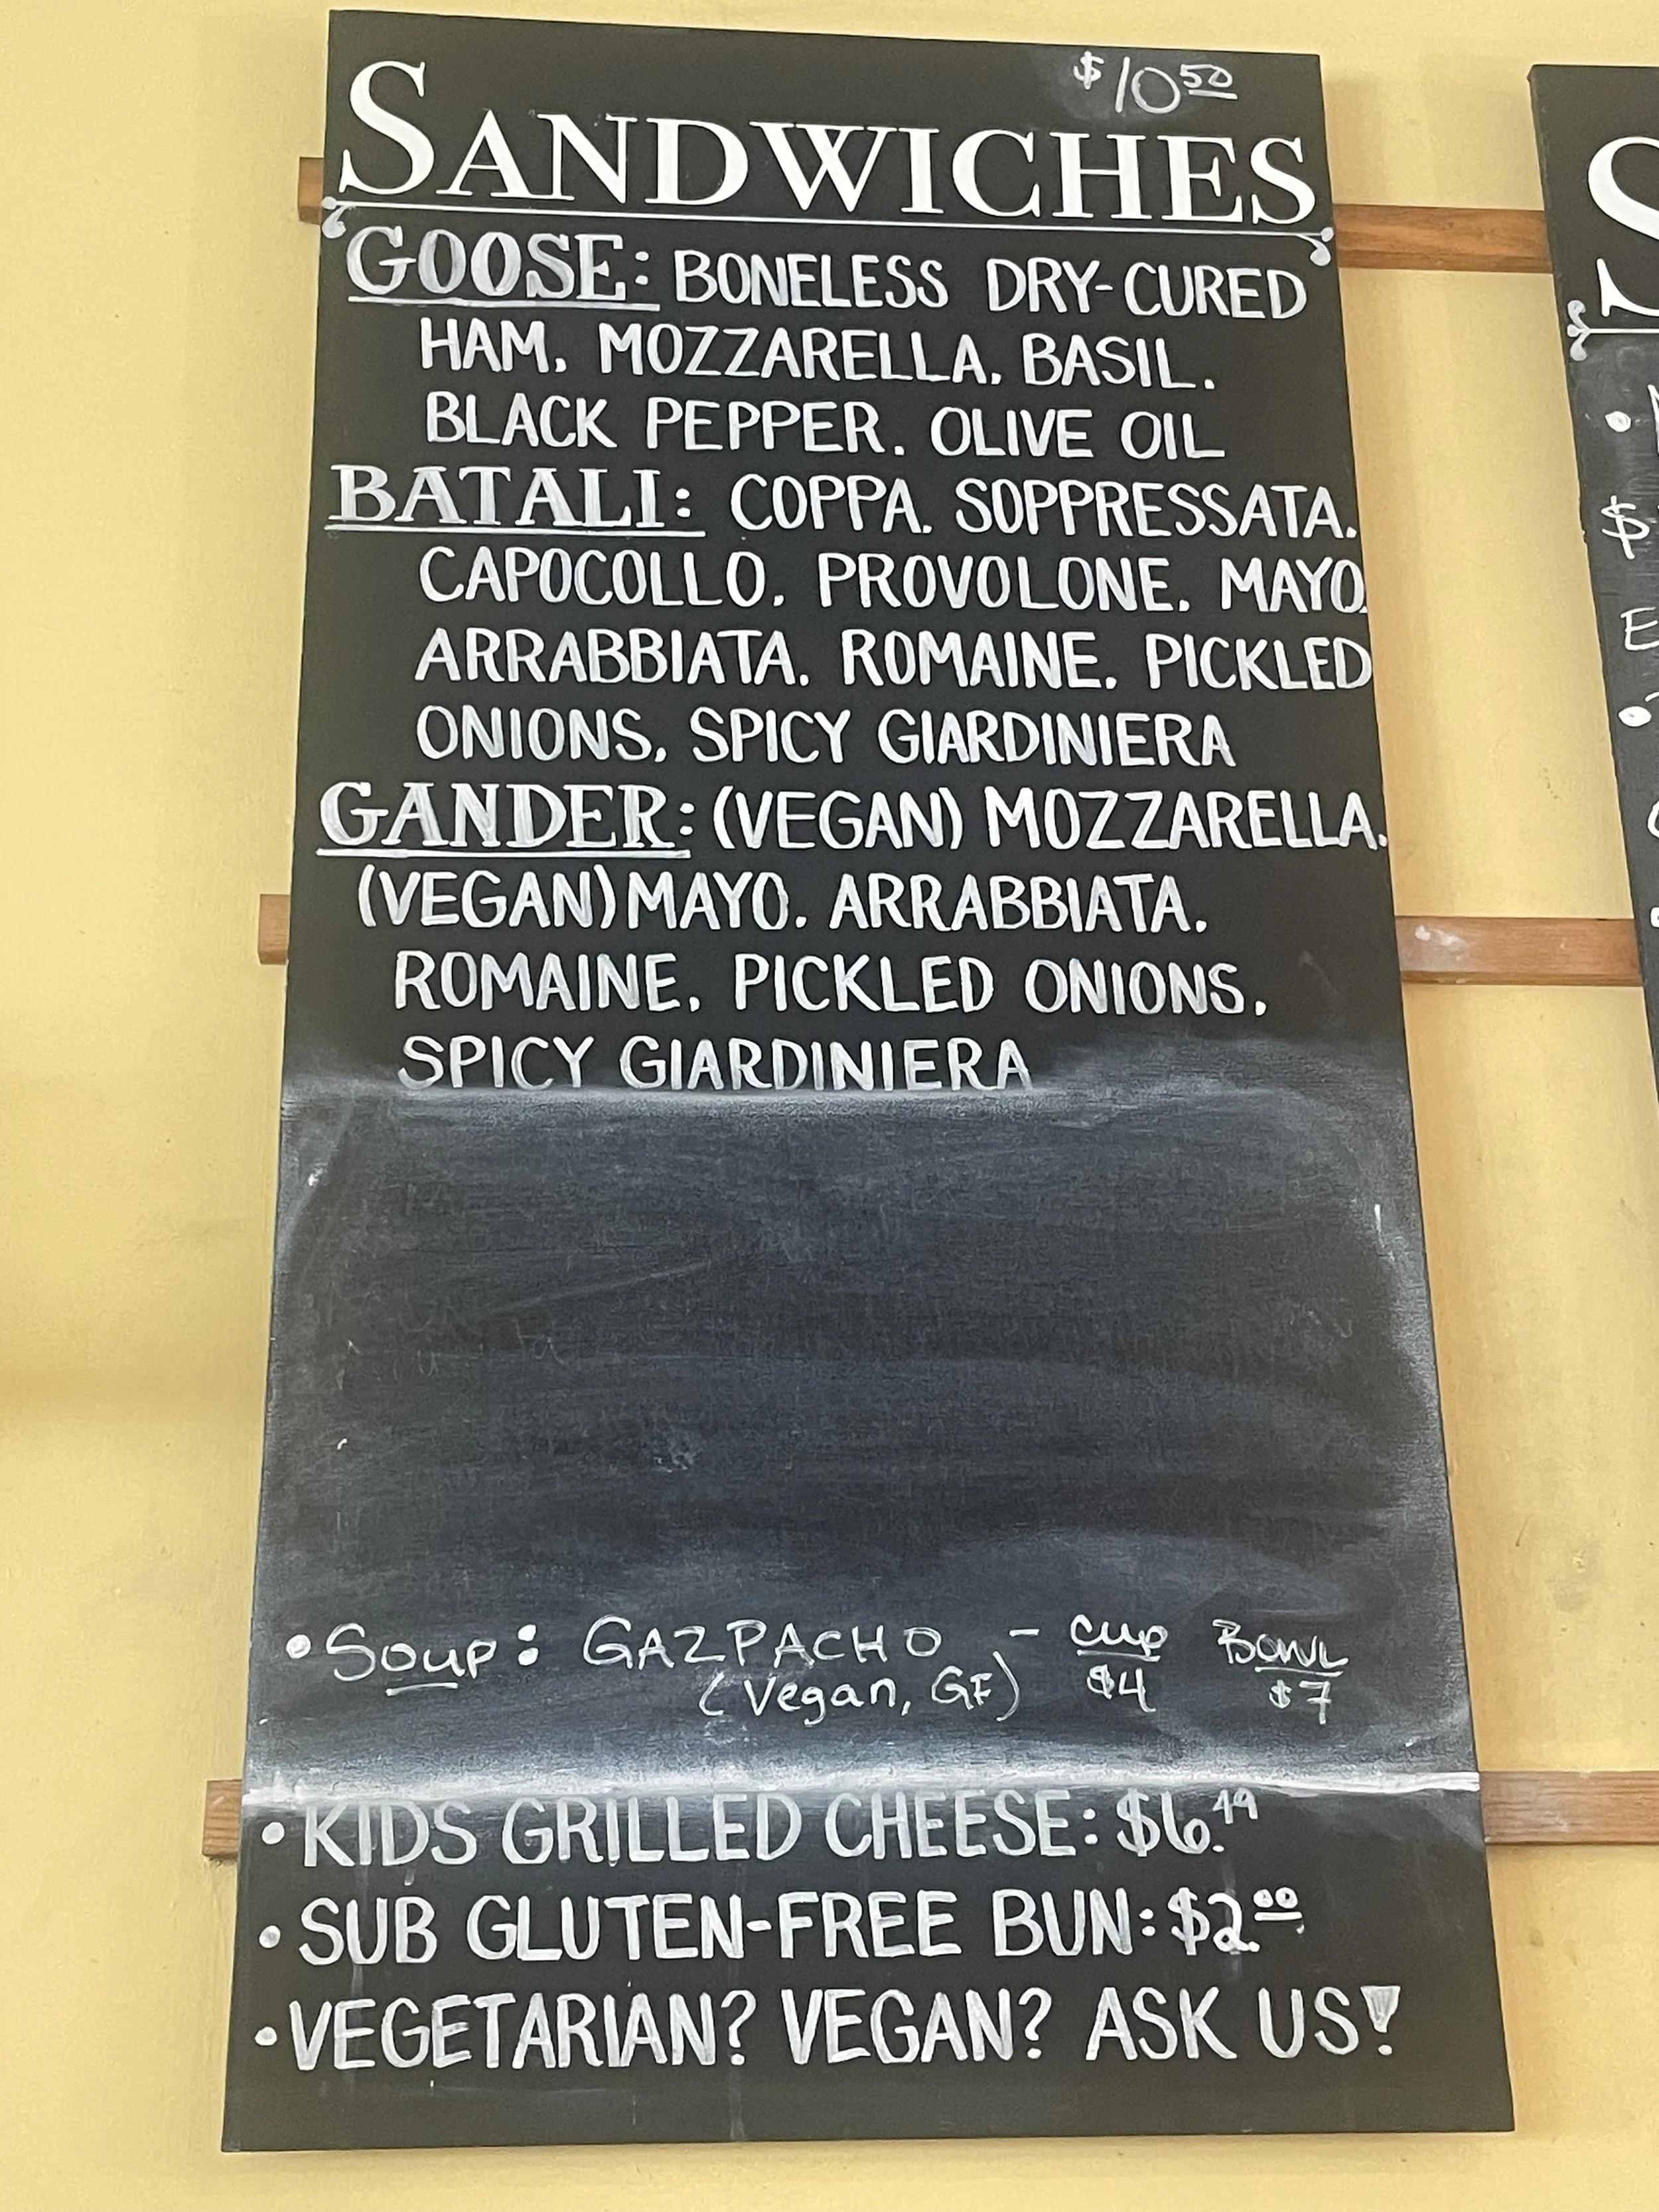 $10 50
SANDWICHES
GOOSE: BONELESS DRY-CURED
HAM. MOZZARELLA. BASIL.
BLACK PEPPER. OLIVE OIL
BATALI: COPPA. SOPPRESSATA.
CAPOCOLLO. PROVOLONE. MAYO.
ARRABBIATA. ROMAINE. PICKLED
ONIONS. SPICY GIARDINIERA
GANDER: (VEGAN) MOZZARELLA.
(VEGAN) MAYO. ARRABBIATA.
ROMAINE. PICKLED ONIONS.
SPICY GIARDINIERA
• Soup: GAZPACHO - cup Bowl
(Vegan, GF) $4 $7
• KIDS GRILLED CHEESE: $6.49
• SUB GLUTEN-FREE BUN: $2.00
• VEGETARIAN? VEGAN? ASK US!